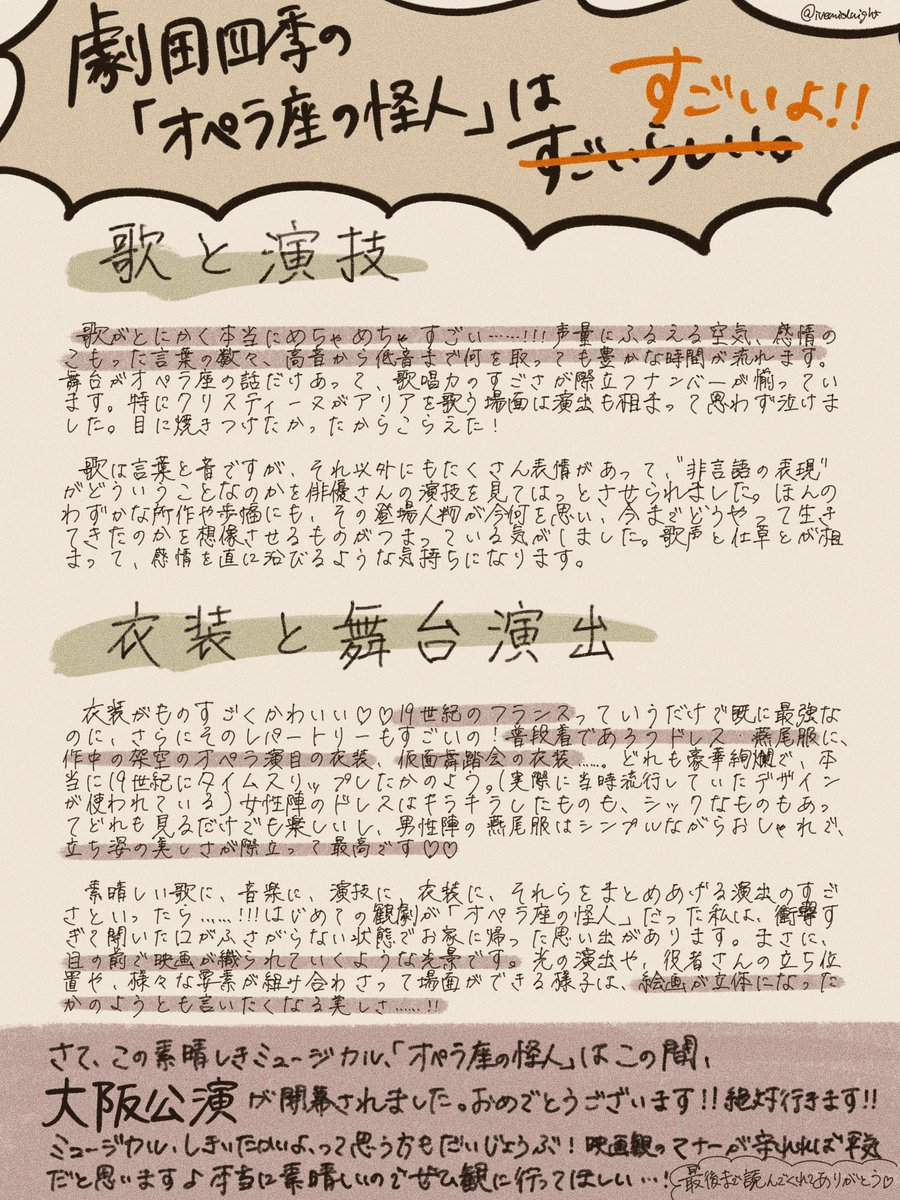 @ivemidnight
劇団四季の
「オペラ座の怪人」は
すごいよ!!
すごいらしい。
歌と演技
歌がとにかく本当にめちゃめちゃすごい……!!!声量にふるえる空気、感情の
こもった言葉の数々、高音から低音まで何を取っても豊かな時間が流れます。
舞台がオペラ座の話だけあって、歌唱力のすごさが際立つナンバーが揃ってい
ます。特にクリスティーヌがアリアを歌う場面は演出も相まって思わず泣けま
した。目に焼きつけたかったからこらえた!
歌は言葉と音ですが、それ以外にもたくさん表情があって、"非言語の表現"
がどういうことなのかを俳優さんの演技を見てはっとさせられました。ほんの
わずかな所作や歩幅にも、その登場人物が今何を思い、今までどうやって生き
てきたのかを想像させるものがつまっている気がしました。歌声と仕草とが相
まって、感情を直に浴びるような気持ちになります。
衣装と舞台演出
衣装がものすごくかわいい♡♡19世紀のフランスっていうだけで既に最強な
のに、さらにそのレパートリーもすごいの!普段着であろうドレス・燕尾服に、
作中の架空のオペラ演目の衣装、仮面舞踏会の衣装……。どれも豪華絢爛で、本
当に19世紀にタイムスリップしたかのよう。(実際に当時流行していたデザイン
が使われている)女性陣のドレスはキラキラしたものも、シックなものもあっ
てどれも見るだけでも楽しいし、男性陣の燕尾服はシンプルながらおしゃれで、
立ち姿の美しさが際立って最高です♡♡
素晴しい歌に、音楽に、演技に、衣装に、それらをまとめあげる演出のすご
さといったら……!!!はじめての観劇が「オペラ座の怪人」だった私は、衝撃す
ぎて開いた口がふさがらない状態でお家に帰った思い出があります。まさに、
目の前で映画が織られていくような光景です。光の演出や、役者さんの立ち位
置や、様々な要素が組み合わさって場面ができる様子は、絵画が立体になった
かのようとも言いたくなる美しさ……!!
さて、この素晴しきミュージカル、「オペラ座の怪人」はこの間、
大阪公演が開幕されました。おめでとうございます!!絶対行きます!!
ミュージカル、しきいたかいよ、って思う方もだいじょうぶ!映画観のマナーが守れれば平気
だと思いますよ本当に素晴しいのでぜひ観に行ってほしい…!
最後まで読んでくれてありがとう♡